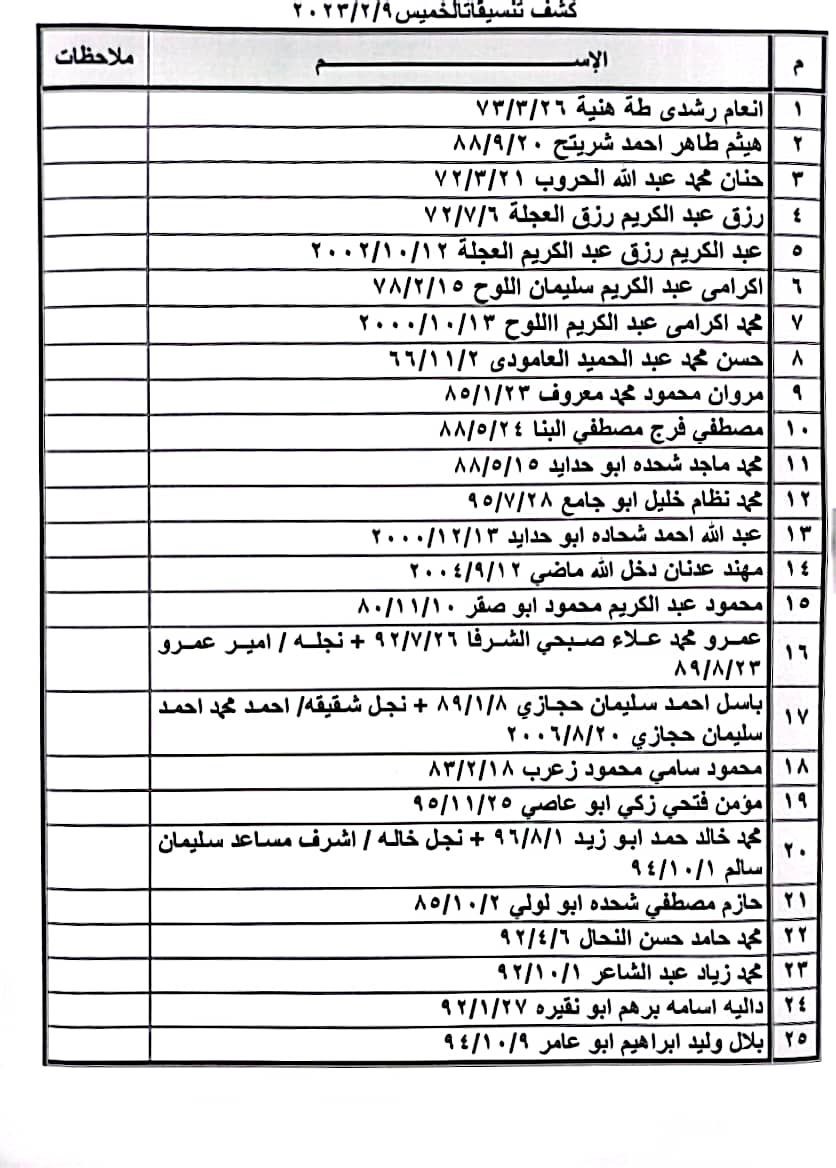 كشف تنسيقاتالخميس ٢٠٢٣/٢/٩
م الإســــم ملاحظات
١ انعام رشدى طة هنية ٧٣/٣/٢٦
٢ هيثم طاهر احمد شريتح ٨٨/٩/٢٠
٣ حنان محمد عبد الله الحروب ٧٢/٣/٢١
٤ رزق عبد الكريم رزق العجلة ٧٢/٧/٦
٥ عبد الكريم رزق عبد الكريم العجلة ٢٠٠٢/١٠/١٢
٦ اكرامى عبد الكريم سليمان اللوح ٧٨/٢/١٥
٧ محمد اكرامى عبد الكريم االلوح ٢٠٠٠/١٠/١٣
٨ حسن محمد عبد الحميد العامودى ٦٦/١١/٢
٩ مروان محمود محمد معروف ٨٥/١/٢٣
١٠ مصطفي فرج مصطفي البنا ٨٨/٥/٢٤
١١ محمد ماجد شحده ابو حدايد ٨٨/٥/١٥
١٢ محمد نظام خليل ابو جامع ٩٥/٧/٢٨
١٣ عبد الله احمد شحاده ابو حدايد ٢٠٠٠/١٢/١٣
١٤ مهند عدنان دخل الله ماضي ٢٠٠٤/٩/١٢
١٥ محمود عبد الكريم محمود ابو صقر ٨٠/١١/١٠
١٦ عمرو محمد علاء صبحي الشرفا ٩٢/٧/٢٦ + نجله / امير عمرو
٨٩/٨/٢٣
١٧ باسل احمد سليمان حجازي ٨٩/١/٨ + نجل شقيقه/ احمد محمد احمد
سليمان حجازي ٢٠٠٦/٨/٢٠
١٨ محمود سامي محمود زعرب ٨٣/٢/١٨
١٩ مؤمن فتحي زكي ابو عاصي ٩٥/١١/٢٥
٢٠ محمد خالد حمد ابو زيد ٩٦/٨/١ + نجل خاله / اشرف مساعد سليمان
سالم ٩٤/١٠/١
٢١ حازم مصطفي شحده ابو لولي ٨٥/١٠/٢
٢٢ محمد حامد حسن النحال ٩٢/٤/٦
٢٣ محمد زياد عبد الشاعر ٩٢/١٠/١
٢٤ داليه اسامه برهم ابو نقيره ٩٢/١/٢٧
٢٥ بلال وليد ابراهيم ابو عامر ٩٤/١٠/٩